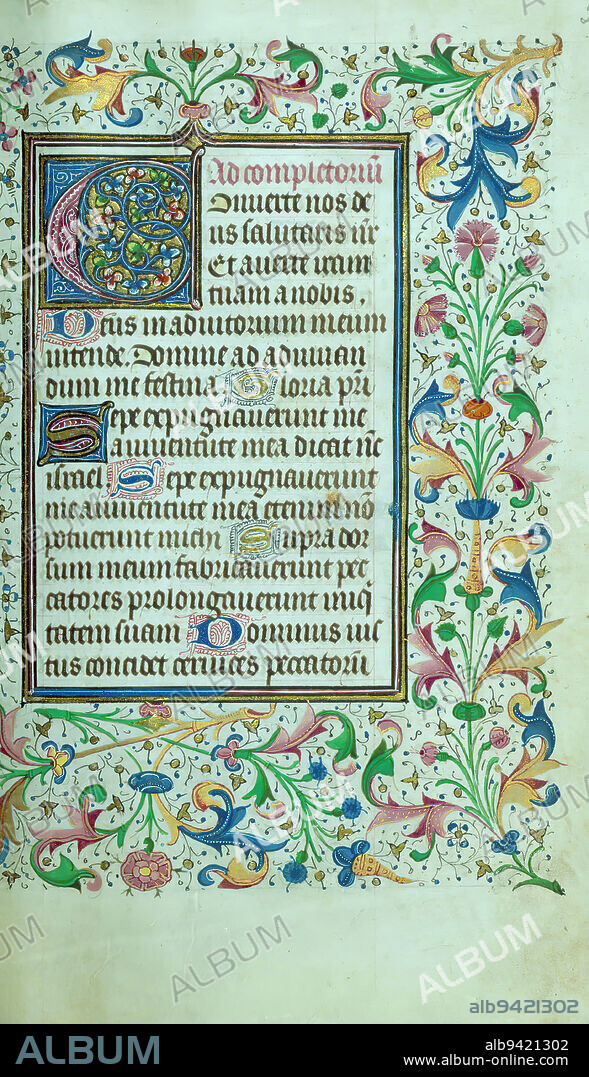 Ad completoriū
Onuerte nos de
us salutaris nr̄
Et auerte iram
tuam a nobis.
Deus in adiutorium meum
intende, Domine ad adiuuan
dum me festina Gloria pr̄i
Sepe expugnauerunt me
a iuuentute mea dicat nūc
israel Sepe expugnauerunt
me a iuuentute mea etenim nō
potuerunt michi Supra dor
sum meum fabricauerunt pec
catores prolongauerunt iniq̄
tatem suam Dominus iuc
tus concidet ceruices peccatorū
alb9421302
ALBUM
alb9421302
www.album-online.com